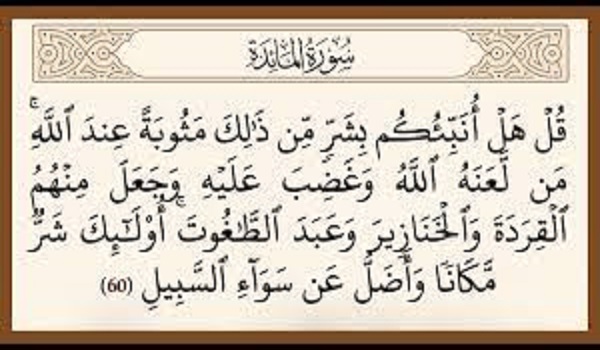 سُورَةُ المَائِدَةِ
قُلْ هَلْ أُنَبِّئُكُم بِشَرٍّ مِّن ذَٰلِكَ مَثُوبَةً عِندَ ٱللَّهِ ۚ
مَن لَّعَنَهُ ٱللَّهُ وَغَضِبَ عَلَيْهِ وَجَعَلَ مِنْهُمُ
ٱلْقِرَدَةَ وَٱلْخَنَازِيرَ وَعَبَدَ ٱلطَّٰغُوتَ ۚ أُو۟لَٰٓئِكَ شَرٌّ
مَّكَانًا وَأَضَلُّ عَن سَوَآءِ ٱلسَّبِيلِ (60)